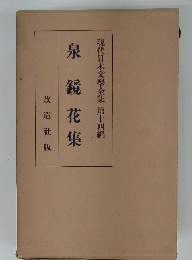 現代日本文學全集 第十四編
泉鏡花集
改造社版